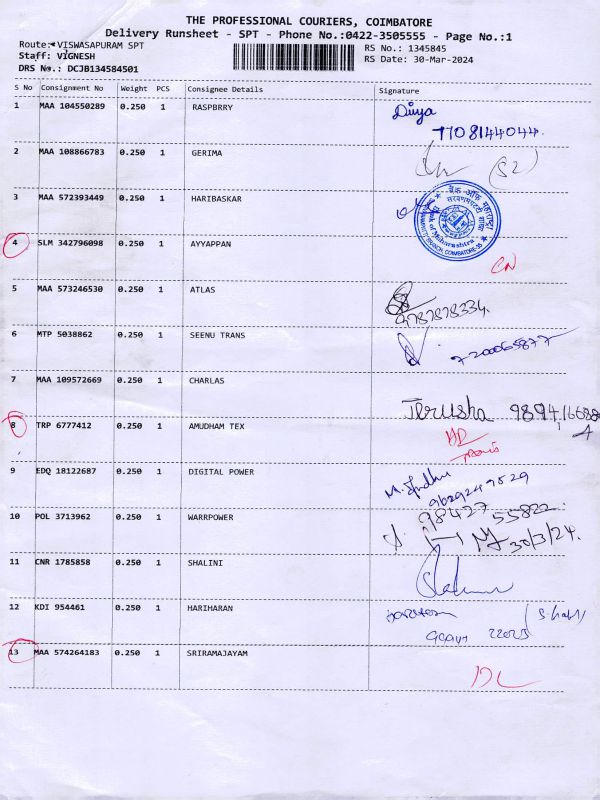 THE PROFESSIONAL COURIERS, COIMBATORE
Delivery Runsheet - SPT - Phone No.:0422-3505555 - Page No.:1
Route: VISWASAPURAM SPT
RS No.: 1345845
Staff: VIGNESH
RS Date: 30-Mar-2024
DRS No.: DCJB134584501
S No Consignment No Weight PCS Consignee Details Signature
1 MAA 104550289 0.250 1 RASPBRRY Divya
7708144044.
2 MAA 108866783 0.250 1 GERIMA (S2)
3 MAA 572393449 0.250 1 HARIBASKAR
4 SLM 342796098 0.250 1 AYYAPPAN
CN
5 MAA 573246530 0.250 1 ATLAS
9787878334.
6 MTP 5038862 0.250 1 SEENU TRANS
7200065877
7 MAA 109572669 0.250 1 CHARLAS
Jerusha
8 TRP 6777412 0.250 1 AMUDHAM TEX
9 EDQ 18122687 0.250 1 DIGITAL POWER
9629249529
10 POL 3713962 0.250 1 WARRPOWER 98427 55822
30/3/24.
11 CNR 1785858 0.250 1 SHALINI
12 KDI 954461 0.250 1 HARIHARAN
13 MAA 574264183 0.250 1 SRIRAMAJAYAM
DL